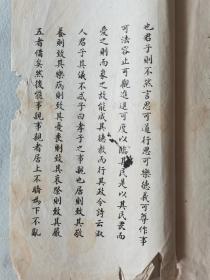 也君子則不然言思可道行思可樂德義可尊作事
可法容止可觀進退可度以臨其民是以其民畏而
愛之則而象之故能成其德教而行其政令詩云淑
人君子其儀不忒子曰孝子之事親也居則致其敬
養則致其樂病則致其憂喪則致其哀祭則致其嚴
五者備矣然後能事親事親者居上不驕為下不亂